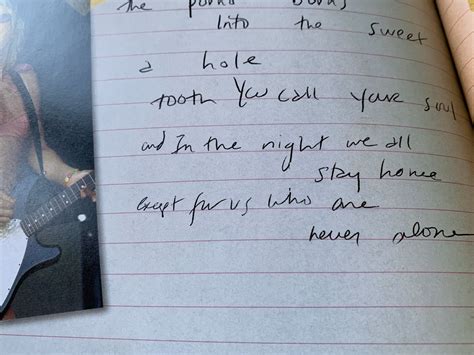 the
Into the sweet
a hole
tooth You call your soul
and In the night we all
stay home
except for us who are
never alone